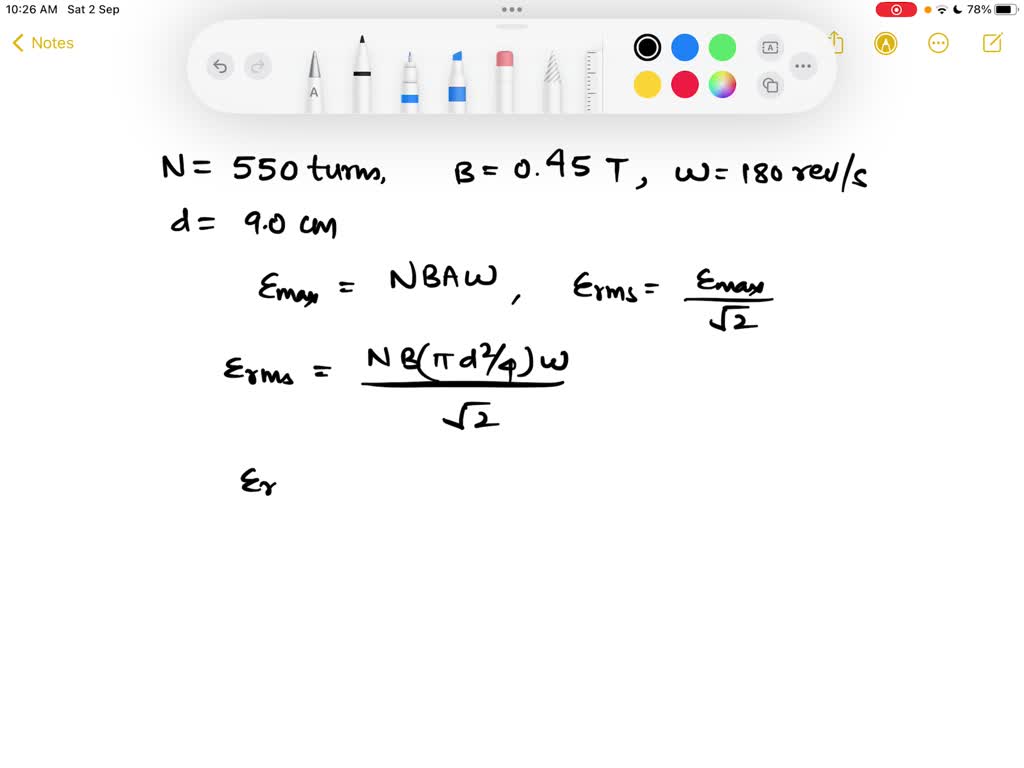 10:26 AM Sat 2 Sep 78%
Notes
A A
N = 550 turns, B = 0.45 T, w = 180 rev/s
d = 9.0 cm
Emax = NBAW, Erms = Emax/√2
Erms = NB(πd²/4)w/√2
Er